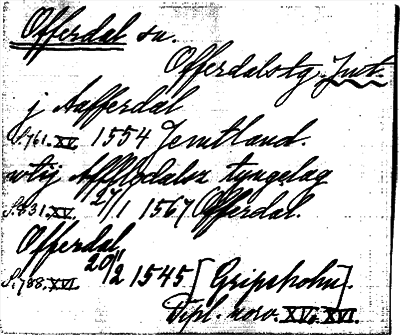 Offerdal sn.
Offerdals tg. Jmt.
j Aafferdal
S. 761. XV. 1554 Jemtland.
wtij Affledalsz tyngelag
S. 831. XV. 27/1 1567 Offerdal.
Offerdal,
S. 788. XVI. 20/2 1545 [Gripsholm].
Dipl. norv. XV. XVI.